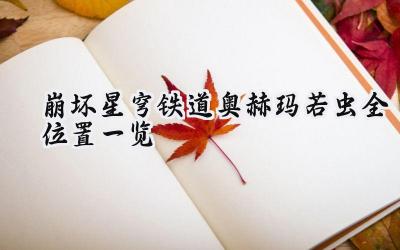 崩坏星穹铁道奥赫玛若虫全
位置一览